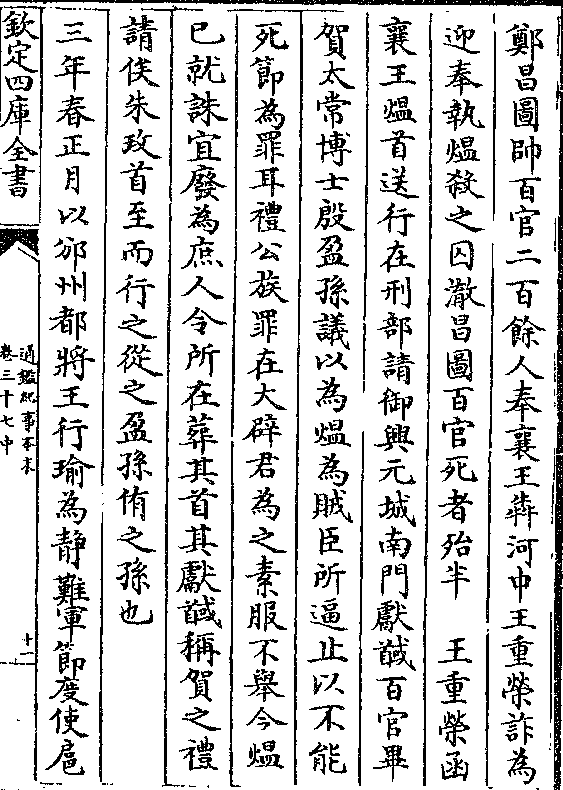 鄭昌圖帥百官二百餘人奉襄王犇河中王重榮詐為
迎奉執熅殺之囚澈昌圖百官死者殆半　王重榮函
襄王熅首送行在刑部請御興元城南門獻馘百官畢
賀太常博士殷盈孫議以為熅為賊臣所逼止以不能
死節為罪耳禮公族罪在大辟君為之素服不舉今熅
已就誅宜廢為庶人令所在葬其首其獻馘稱賀之禮
請俟朱玫首至而行之從之盈孫侑之孫也
三年春正月以邠州都將王行瑜為靜難軍節度使扈
欽定四庫全書
通鑑紀事本末
卷三十七中
十一